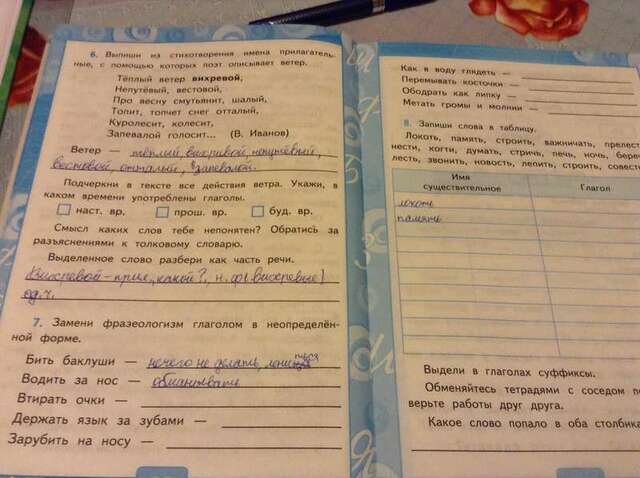 6. Выпиши из стихотворения имена прилагатель-
ные, с помощью которых поэт описывает ветер.
Тёплый ветер вихревой,
Непутёвый, вестовой,
Про весну смутьянит, шалый,
Топит, топчет снег отталый,
Куролесит, колесит,
Запевалой голосит... (В. Иванов)
Ветер — тёплый вихревой, непутёвый,
вестовой, отталый, запевалой.
Подчеркни в тексте все действия ветра. Укажи, в
каком времени употреблены глаголы.
наст. вр. прош. вр. буд. вр.
Смысл каких слов тебе непонятен? Обратись за
разъяснениями к толковому словарю.
Выделенное слово разбери как часть речи.
Вихревой – прил., какой?, н.ф
ед.ч.
7. Замени фразеологизм глаголом в неопределён-
ной форме.
Бить баклуши — нечего не делать,
Водить за нос — обманывать
Втирать очки —
Держать язык за зубами —
Зарубить на носу —
Как в воду глядеть —
Перемывать косточки —
Ободрать как липку —
Метать громы и молнии —
8. Запиши слова в таблицу.
Локоть, память, строить, важничать, прелест
нести, когти, думать, стричь, печь, ночь, берe
лесть, звонить, новость, лепить, строить, совест
Имя
существительное
Глагол
локоть
память
Выдели в глаголах суффиксы.
Обменяйтесь тетрадями с соседом по
верьте работы друг друга.
Какое слово попало в оба столбика